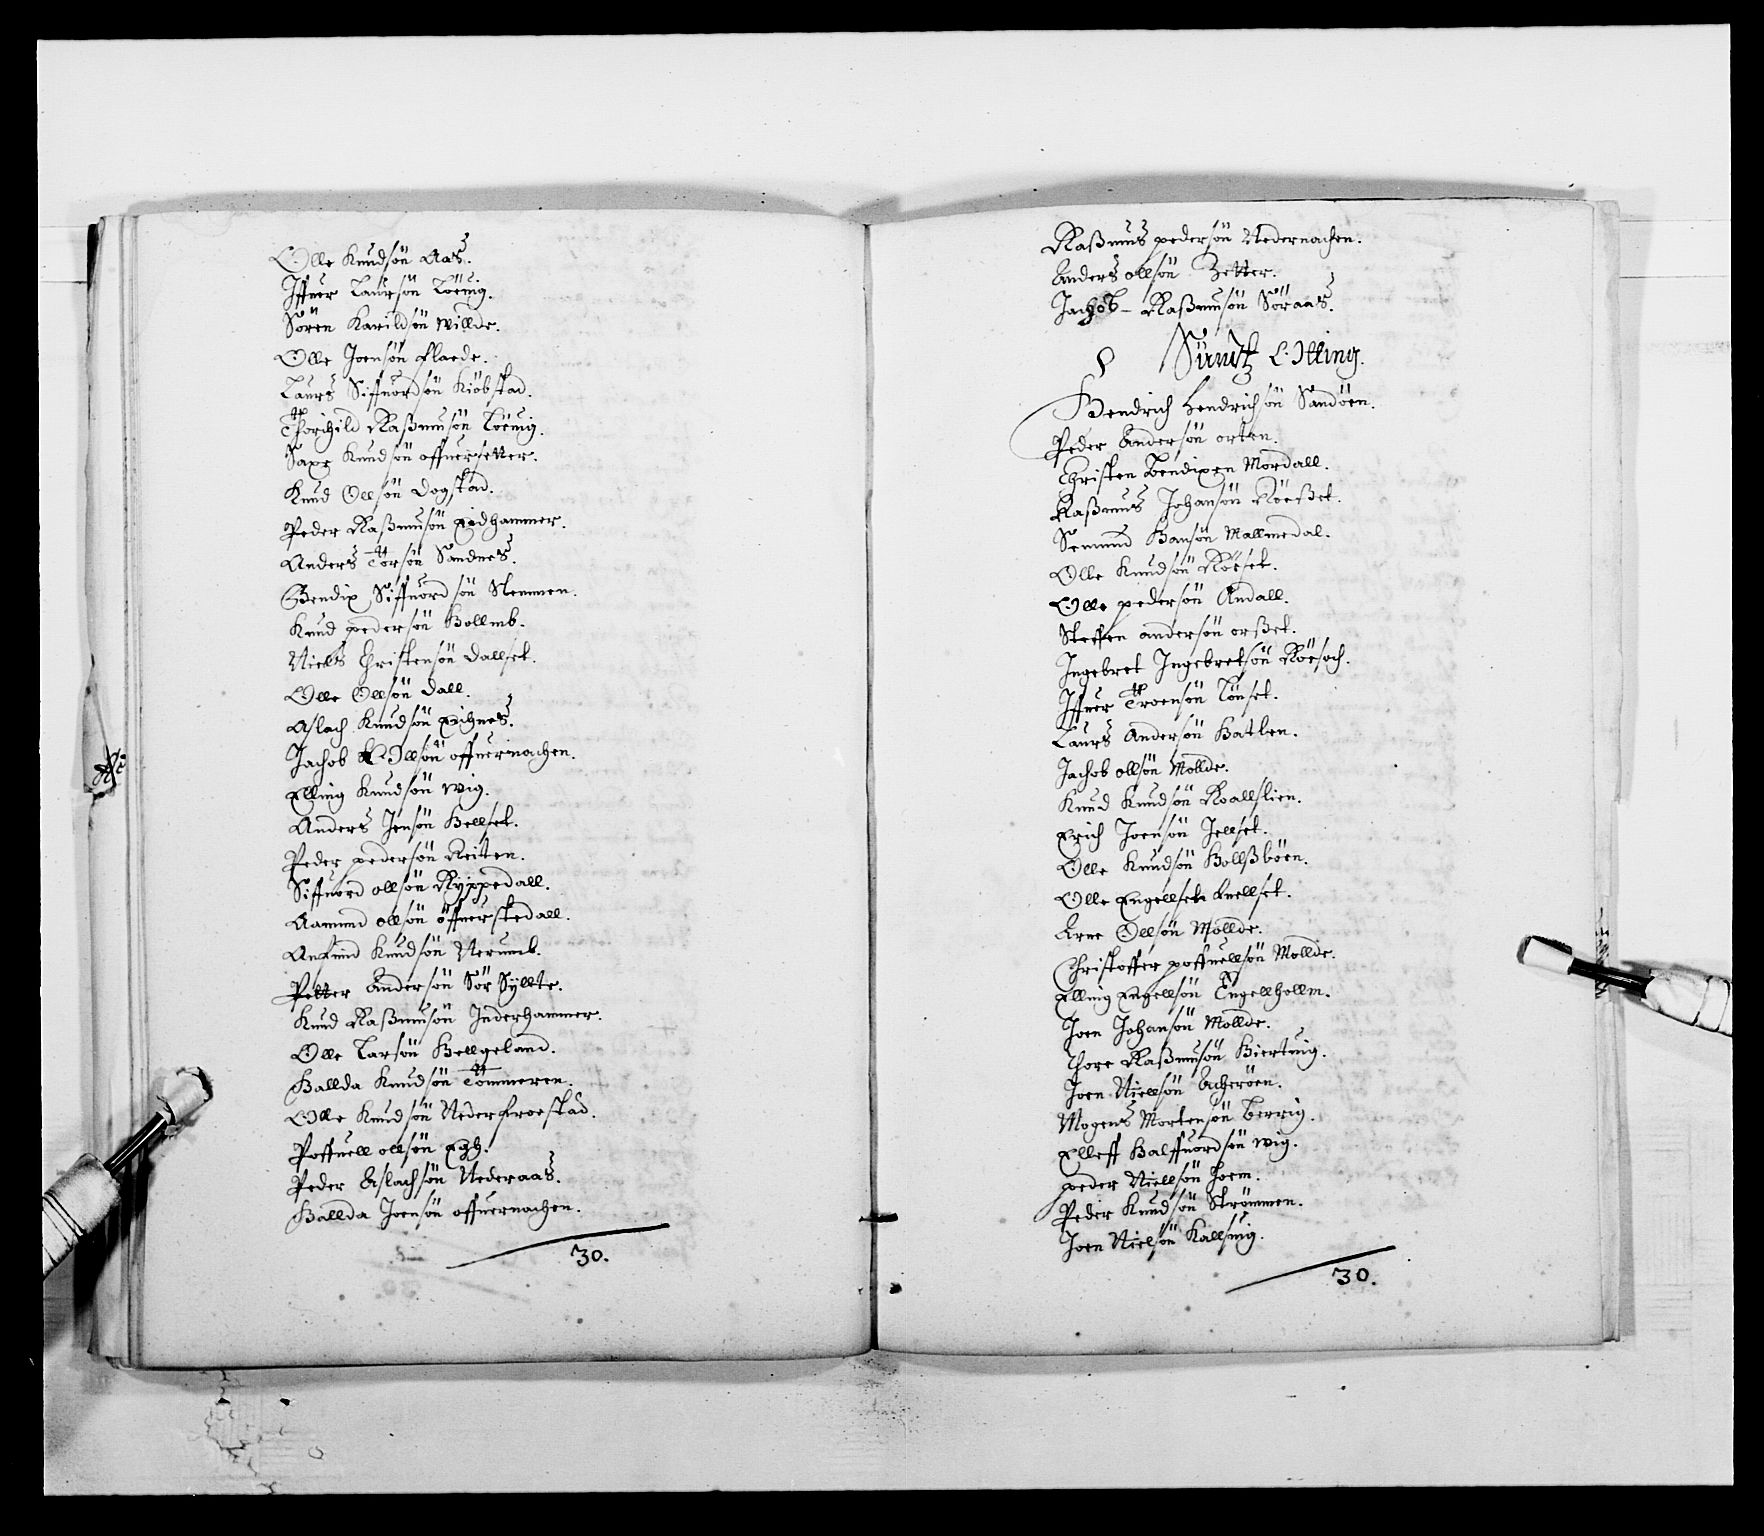 Olle Knudsön Aas.
Iffuer Laursön Löeuig.
Sören Karildsön Willde.
Olle Joensön Flaede.
Laurs Siffuordsön Kiöbstad.
Thorchild Raßmusön Löeuig.
Saxe Knudsön offuersetter.
Knud Ollsön Dogstad.
Peder Raßmusön Eidhammer.
Anders Torsön Sandnes.
Bendix Siffuordsön Stemmen.
Knud pedersön Hollmb.
Niels Christensön Dallset.
Olle Ollsön Dall.
Aslach Knudsön Eichnes.
Jachob Ollsön offuernachen.
Elling Knudsön Wiig.
Anders Jensön Hellset.
Peder pedersön Reiten.
Siffuord ollsön Ryppedall.
Aamund ollsön öffuerstedall.
Anfind Knudsön Nerumb.
Petter Andersön Sör Syllte.
Knud Raßmusön Inderhammer.
Olle Larsön Hellgeland.
Hallda Knudsön Tömmeren.
Olle Knudsön Nederfroestad.
Poffuell ollsön Egh.
Peder Aslachsön Nederaas.
Hallda Joensön offuernachen.
30.
Raßmus pedersön Nedernachen.
Anders ollsön Zetter.
Jachob - Raßmusön Söraas.
Hendrich Hendrichsön Sandöen.
Peder Andersön orten.
Christen Bendixen Mordall.
Raßmus Johansön Röeßet.
Semund Hansön Mallmedal.
Olle Knudsön Röeset.
Olle pedersön Andall.
Steffen andersön orßet.
Ingebret Ingebretsön Röesoch.
Iffuer Troensön Lönset.
Laurs Andersön Hatlen.
Jachob ollsön Mollde.
Knud Knudsön Roallslien.
Erich Joensön Jellset.
Olle Knudsön Hollßböen.
Olle Engellset Knellset.
Arne Ollsön Mollde.
Christoffer poffuellsön Mollde.
Elling Engellsön Engellhollm.
Joen Johansön Mollde.
Thore Raßmusön Hiertuig.
Joen Niellsön Acheröen.
Mogens Mortensön Berrig.
Elleff Halffuordsön Wiig.
peder Niellsön Hoem.
Peder Knudsön Strömmen.
Joen Nielsön Kallsuig.
30.